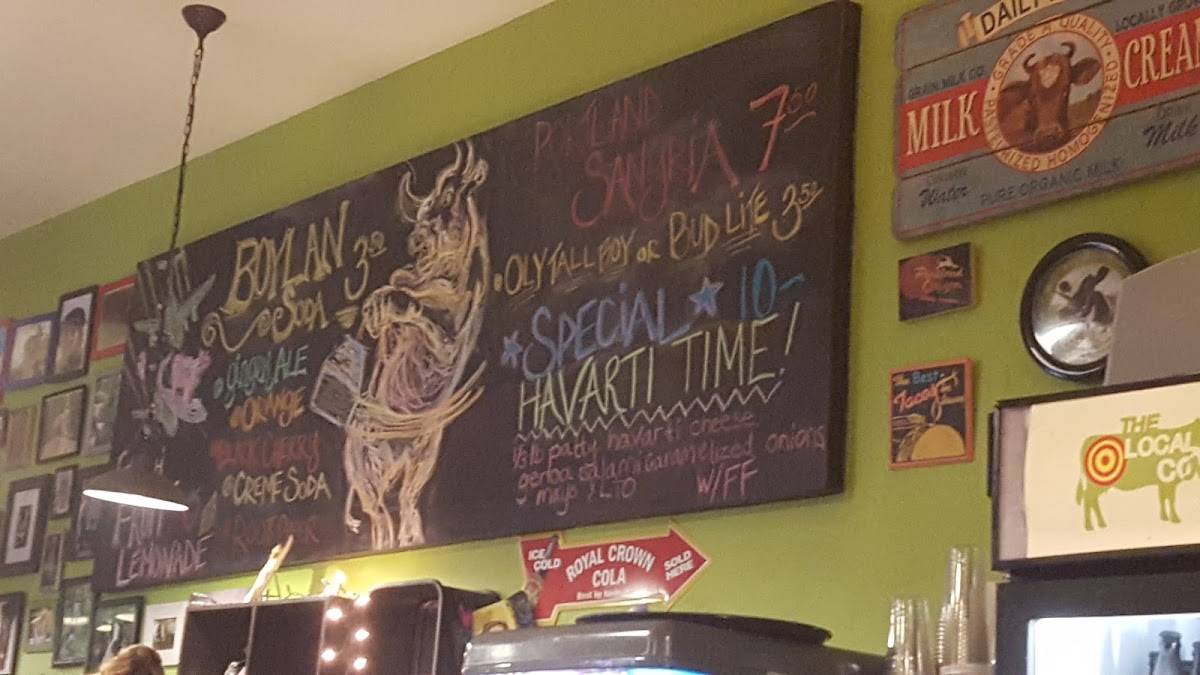 BOYLAN
SODA
3.00
GINGER ALE
ORANGE
BLACK CHERRY
CREME SODA
ROOT BEER
FRUIT
LEMONADE
PORTLAND
SANGRIA
7.00
OLY TALL BOY OR BUD LITE 3.50
SPECIAL 10-
HAVARTI TIME!
1/3 lb patty havarti cheese
genoa salami caramelized onions
mayo & LTO W/FF
DAILY
LOCALLY GRO
GRADE A QUALITY
GRAIN MILK CO.
MILK
CREAM
HOMOGENIZED
Water
Milk
PURE ORGANIC MILK
The Best
Tacos
THE
LOCAL
CO
ICE
COLD
ROYAL CROWN
COLA
SOLD
HERE